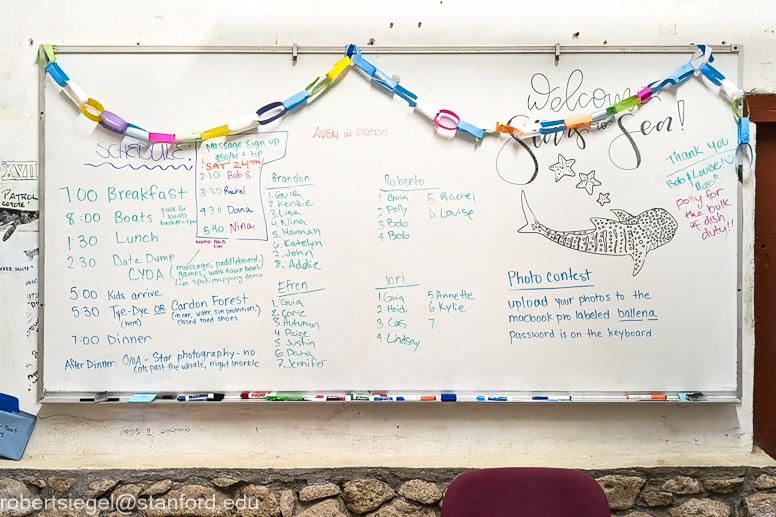 Welcome
to
Sea!
SCHEDULE:
7:00 Breakfast
8:00 Boats pack for boats
1:30 Lunch
2:30 Data Dump
CYOA (massage, paddleboard, games, walk down beach
live spot-mapping demo
5:00 Kids arrive
5:30 Tye-Dye OR Cardon Forest
(here) (near, water, sun protection)
closed toed shoes
7:00 Dinner
After Dinner: CYOA - Star photography - no
cots past the whale, night snorkle
Massage Sign up
$50/hr + tip
! SAT 24th
2:10 Bob S
3:20 Rachel
4:30 Dana
5:40 Nina
AVEN w Station
Brandon
1. Guia
2. Kenzie
3. Lisa
4. Nina
5. Hannah
6. Katelyn
7. John
8. Addie
Efren
1. Guia
2. Corie
3. Autumn
4. Paice
5. Justin
6. Dana
7. Jennifer
Roberto
1 Guia 5. Rachel
2 Polly 6. Louise
3 Bob
4 Bob
Inri
1. Guia 5 Annette
2 Heidi 6 Kylie
3 Cas 7.
4 Lindsay
Thank you
Bob & Louise!
Polly for
the bulk
of dish
duty!!
Photo contest
upload your photos to the
macbook pro labeled ballena
password is on the keyboard
XVIII
PATROL
COYOTE
robertsiegel@stanford.edu